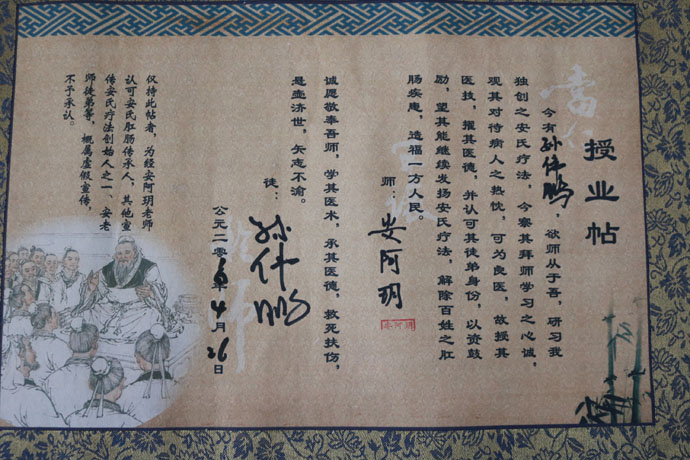 授业帖
今有孙伟鹏，欲师从于吾，研习我
独创之安氏疗法，今察其拜师学习之心诚，
观其对待病人之热忱，可为良医，故授其
医技，擢其医德，并认可其徒弟身份，以资鼓
励，望其能继续发扬安氏疗法，解除百姓之肛
肠疾患，造福一方人民。
师：安阿玥
安阿玥
诚愿敬奉吾师，学其医术，承其医德，救死扶伤，
悬壶济世，矢志不渝。
徒：孙伟鹏
公元二零 年4月26日
仅持此帖者，为经安阿玥老师
认可安氏肛肠传承人，其他宣
传安氏疗法创始人之一、安老
师徒弟等，概属虚假宣传，
不予承认。